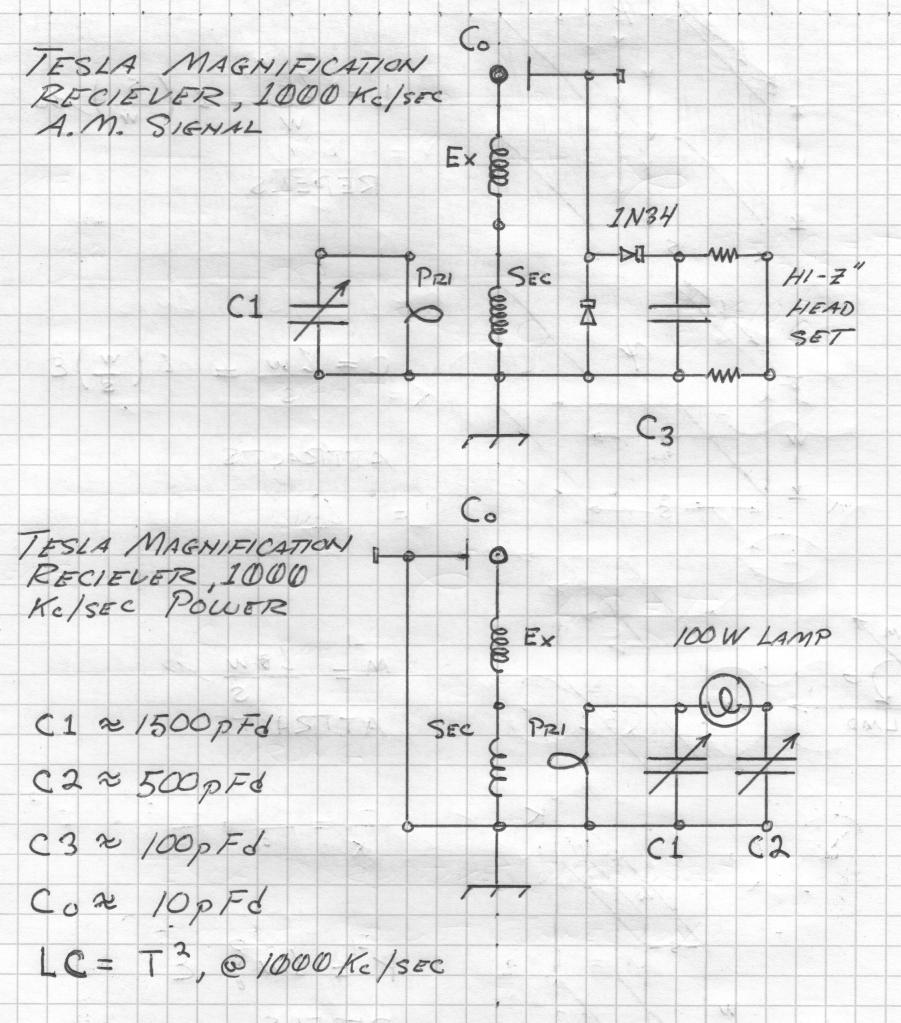 TESLA MAGNIFICATION
RECIEVER, 1000 Kc/SEC
A.M. SIGNAL
Co
Ex
1N34
PRI
SEC
C1
HI-Z"
HEAD
SET
C3
Co
TESLA MAGNIFICATION
RECIEVER, 1000
Kc/SEC POWER
Ex
100W LAMP
SEC
PRI
C1 ≈ 1500pFd
C2 ≈ 500pFd
C1
C2
C3 ≈ 100pFd
Co ≈ 10pFd
LC = T², @ 1000 Kc/SEC